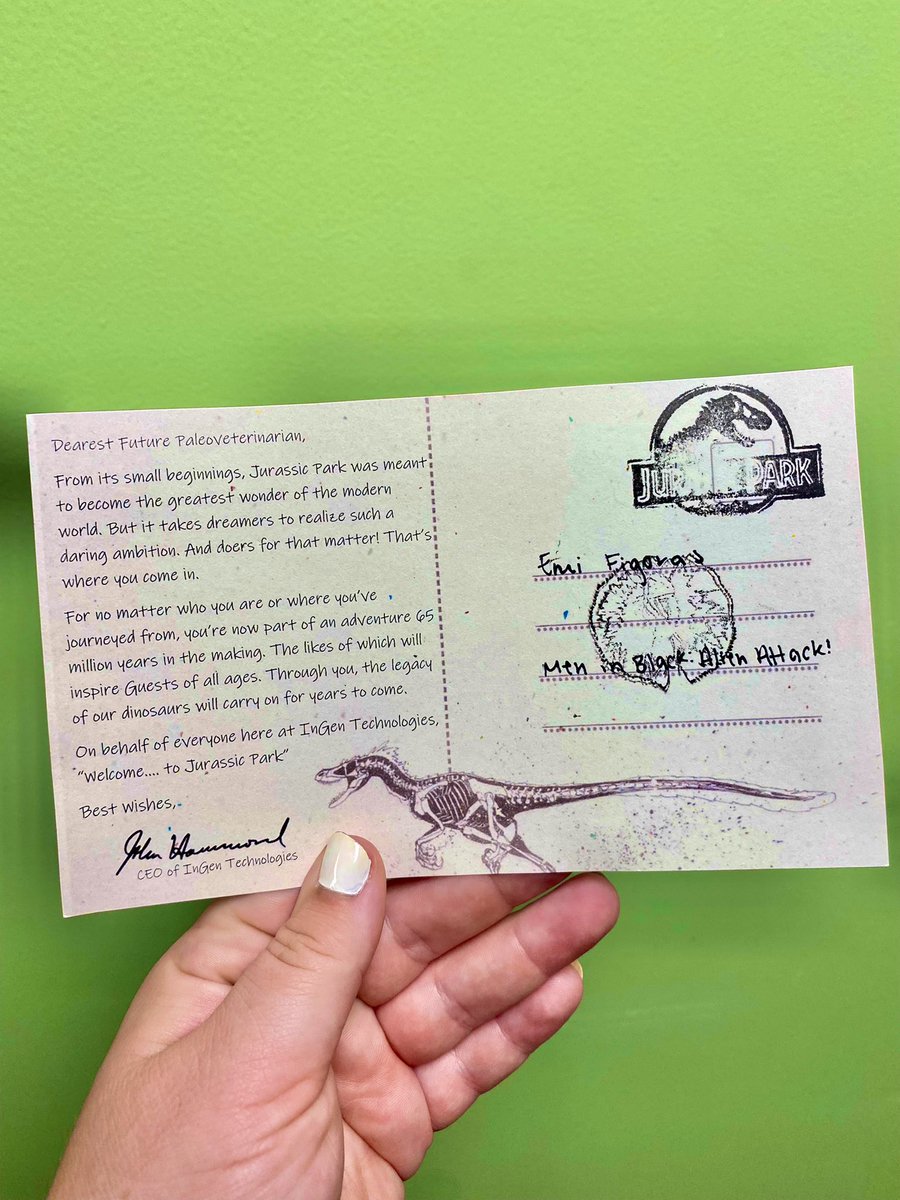 Dearest Future Paleoveterinarian,
From its small beginnings, Jurassic Park was meant
to become the greatest wonder of the modern
world. But it takes dreamers to realize such a
daring ambition. And doers for that matter! That's
where you come in.
For no matter who you are or where you've
journeyed from, you're now part of an adventure 65
million years in the making. The likes of which will
inspire Guests of all ages. Through you, the legacy
of our dinosaurs will carry on for years to come.
On behalf of everyone here at InGen Technologies,
"Welcome.... to Jurassic Park"
Best Wishes,
John Hammond
CEO of InGen Technologies
JURASSIC PARK
Emi
Men in Black: Alien Attack!